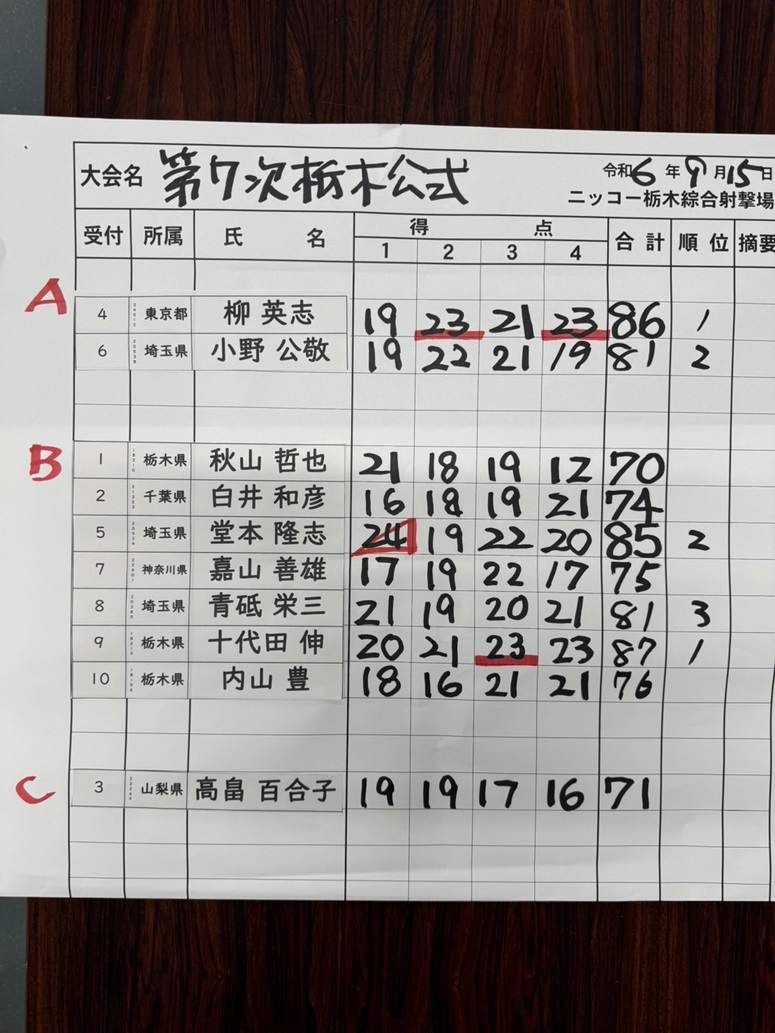 大会名 第7次栃木公式 令和6年9月15日
ニッコー栃木綜合射撃場
受付 所属 氏名 得点 合計 順位 摘要
1 2 3 4
A
4 東京都 柳 英志 19 23 21 23 86 1
6 埼玉県 小野 公敬 19 22 21 19 81 2
B
1 栃木県 秋山 哲也 21 18 19 12 70
2 千葉県 白井 和彦 16 18 19 21 74
5 埼玉県 堂本 隆志 24 19 22 20 85 2
7 神奈川県 嘉山 善雄 17 19 22 17 75
8 埼玉県 青砥 栄三 21 19 20 21 81 3
9 栃木県 十代田 伸 20 21 23 23 87 1
10 栃木県 内山 豊 18 16 21 21 76
C
3 山梨県 高畠 百合子 19 19 17 16 71